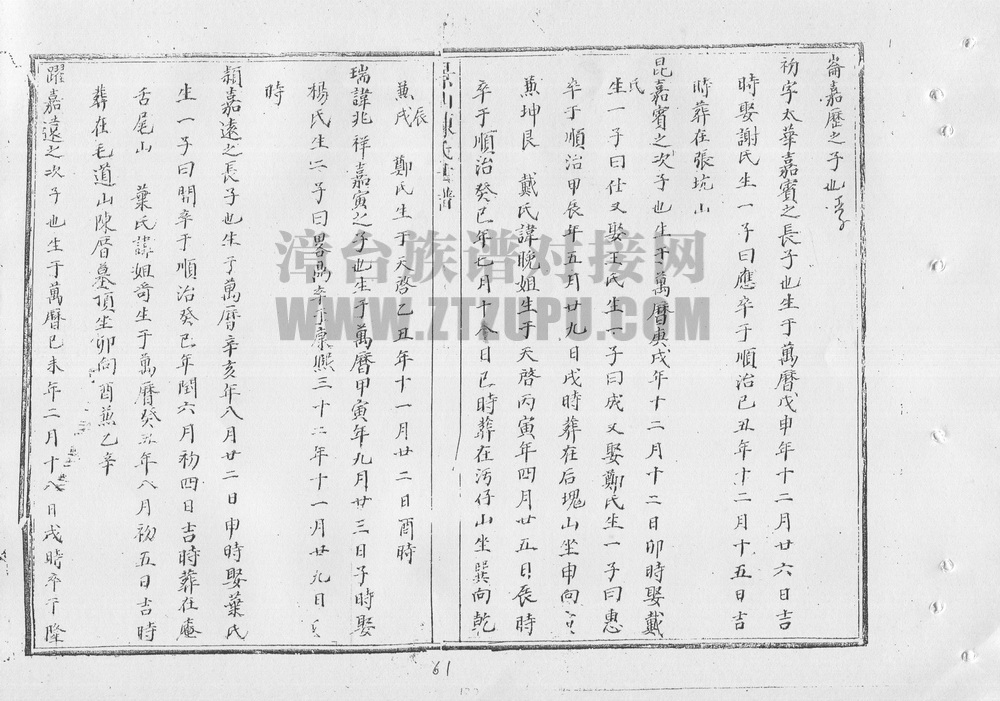 崙嘉歷之子也
初字太華嘉賓之長子也生于萬曆戊申年十二月廿六日吉
時娶謝氏生一子曰應卒于順治己丑年十二月十五日吉
時葬在張坑山
昆嘉賓之次子也生于萬曆庚戌年十二月十二日卯時娶戴
氏生一子曰仕又娶王氏生一子曰成又娶鄭氏生一子曰惠
卒于順治甲辰年五月廿九日戌時葬在后塊山坐申向
兼坤艮 戴氏諱晚姐生于天啓丙寅年四月廿五日辰時
卒于順治癸巳年七月十 日巳時葬在沔仔山坐巽向乾
山陳氏 譜
兼辰戌 鄭氏生于天啓乙丑年十一月廿二日酉時
瑞諱兆祥嘉寅之子也生于萬曆甲寅年九月廿三日子時娶
楊氏生二子曰 卒于康熙三十二年十一月廿九日
時
頴嘉遠之長子也生于萬曆辛亥年八月廿二日申時娶葉氏
生一子曰開卒于順治癸巳年閏六月初四日吉時葬在庵
舌尾山 葉氏諱姐 生于萬曆癸丑年八月初五日吉時
葬在毛道山陳厝墓頂坐卯向酉兼乙辛
躍嘉遠之次子也生于萬曆己未年二月十八日戌時卒于隆
漳台族谱对接网
WWW.ZTZUPU.COM
61